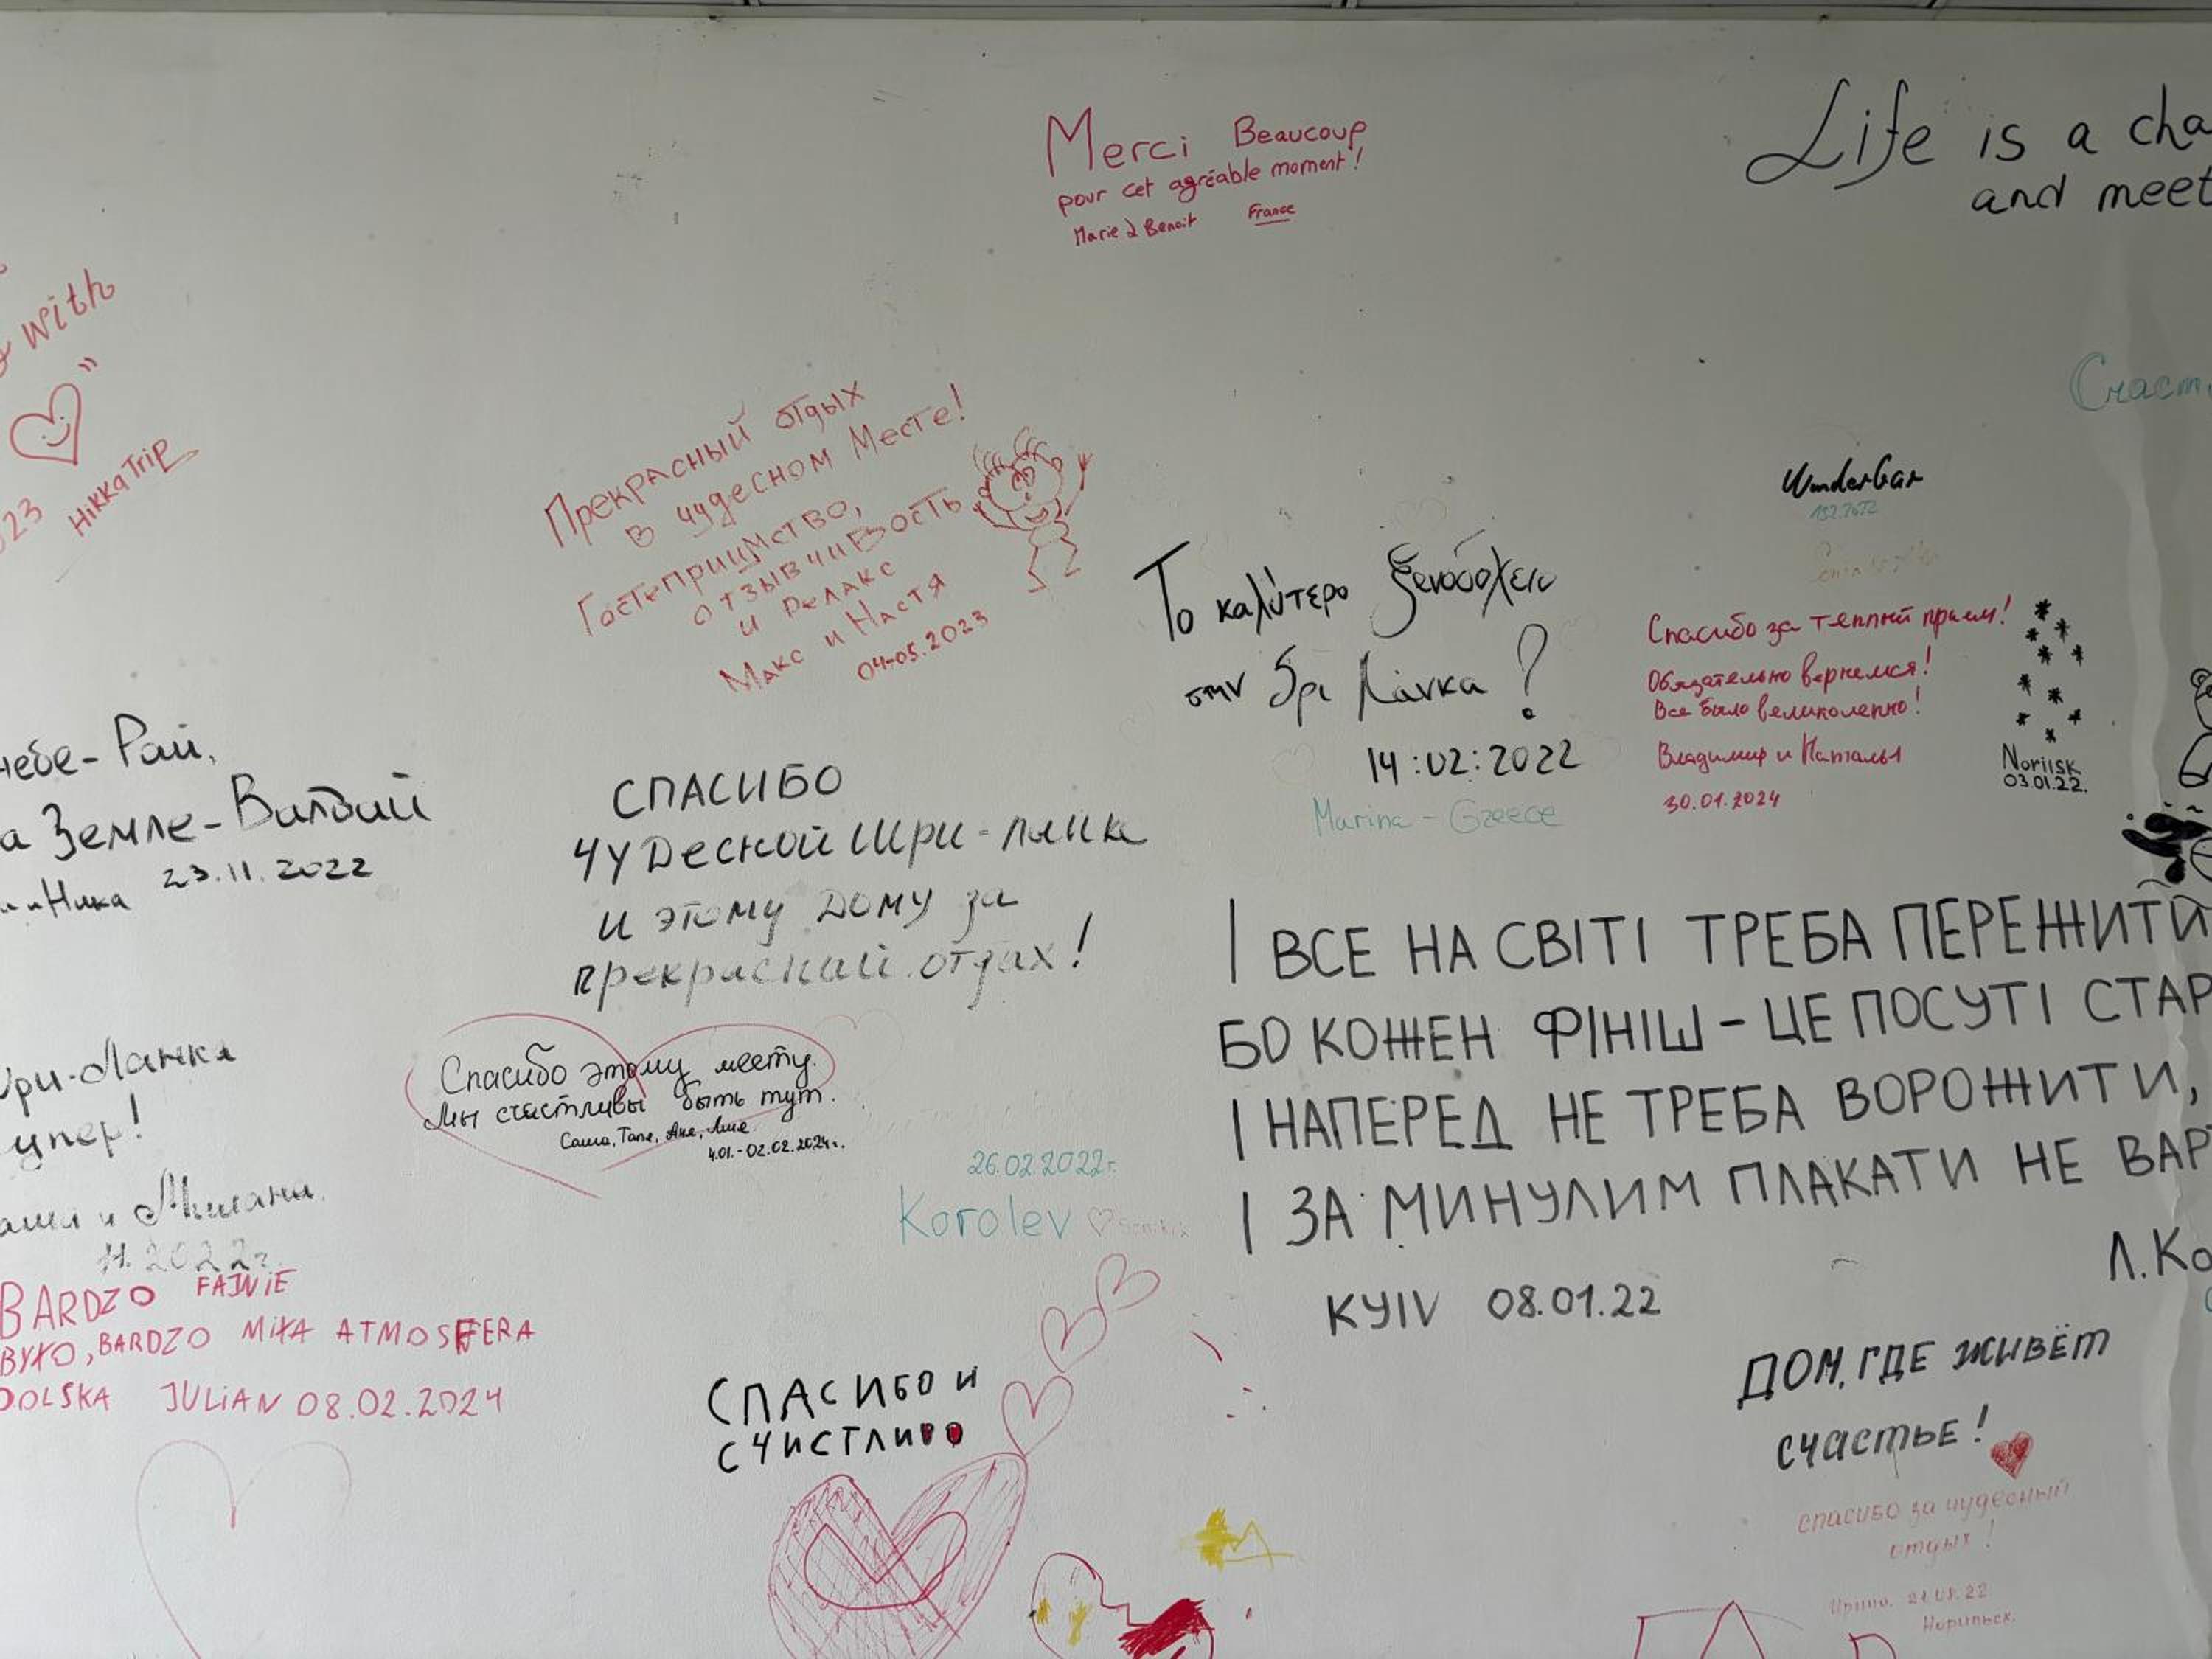 Merci Beaucoup
pour cet agréable moment!
Marie & Benoit France
Life is a
and meet
with
HikkaTrip
Прекрасный отдых
в чудесном Месте!
Гостеприимство,
отзывчивость
и релакс
Макс и Настя
04-05.2023
Wunderbar
Το καλύτερο
στην Σρι Λάνκα ?
14:02:2022
Marina - Greece
Спасибо за теплый прием!
Обязательно вернемся!
Все было великолепно!
Владимир и Наталья
30.01.2024
Norilsk
03.01.22.
Рай,
Земле-Валдай
Ника 23.11.2022
СПАСИБО
ЧУДесной Шри-ланке
и этому Дому за
прекрасный отдых!
I ВСЕ НА СВІТІ ТРЕБА ПЕРЕЖИТИ
БО КОЖЕН ФІНІШ - ЦЕ ПОСУТІ
I НАПЕРЕД НЕ ТРЕБА ВОРОЖИТИ,
I ЗА МИНУЛИМ ПЛАКАТИ НЕ
Л.
KYIV 08.01.22
Спасибо этому месту.
Мы счастливы быть тут.
Саша, Таня, Аня,
02.02.2024г.
26.02.2022г.
Korolev
и Милана
BARDZO FAJNIE
BYŁO, BARDZO MIŁA ATMOSFERA
POLSKA JULIAN 08.02.2024
СПАСИБО и
СЧИСТЛИВО
ДОМ, ГДЕ ЖИВЁТ
счастьЕ!
спасибо за чудесный
отдых!
Норильск.